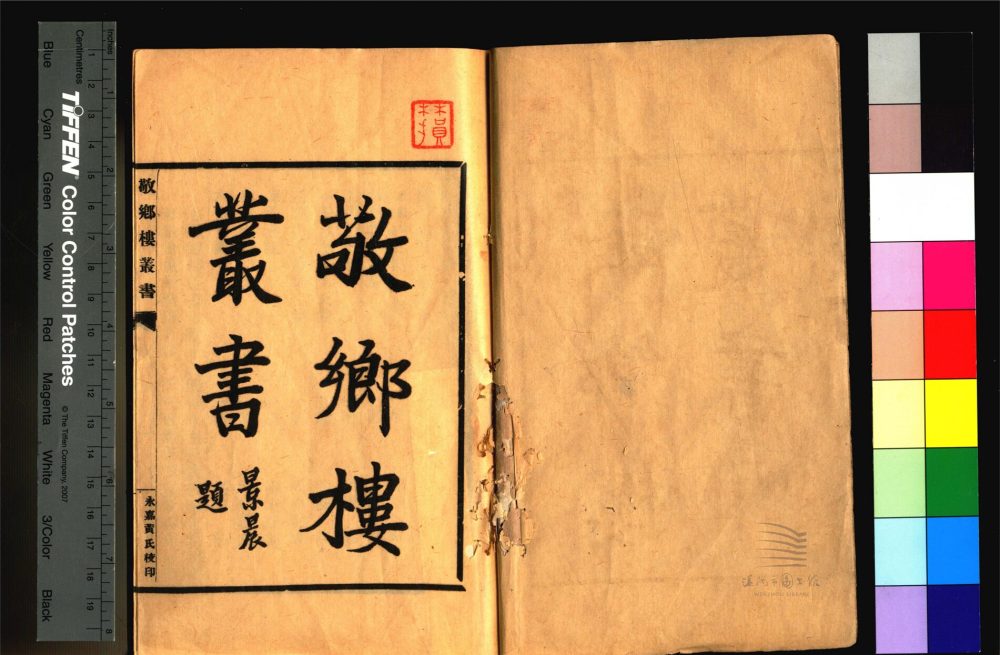 敬鄉樓
叢書
景晨
題
敬鄉樓叢書
永嘉黃氏校印
溫州市圖書館
WENZHOU LIBRARY
Inches
Centimetres
1 2 3 4 5 6 7 8
1 2 3 4 5 6 7 8 9 10 11 12 13 14 15 16 17 18 19
TIFFEN Color Control Patches
© The Tiffen Company, 2007
Blue Cyan Green Yellow Red Magenta White 3/Color Black